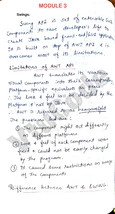 MODULE 3
Swings
Swing API is set of extensible GUI
Components to ease developers life to
create JAVA based front end/GUI applications
It is built on top of AWT API & it
overcomes most of its limitations.
Limitations of AWT API
AWT translates its various
visual components into their corresponding
platform-specific equivalents
The look & feel is defined by the
platform & not by
AWT is referred as heavyweight
The problems are:
Component might act differently
on different platforms
look & feel of each component were
fixed & could not be easily changed
by the programs
It caused some restrictions on usage
of the components
Difference between AWT & SWING